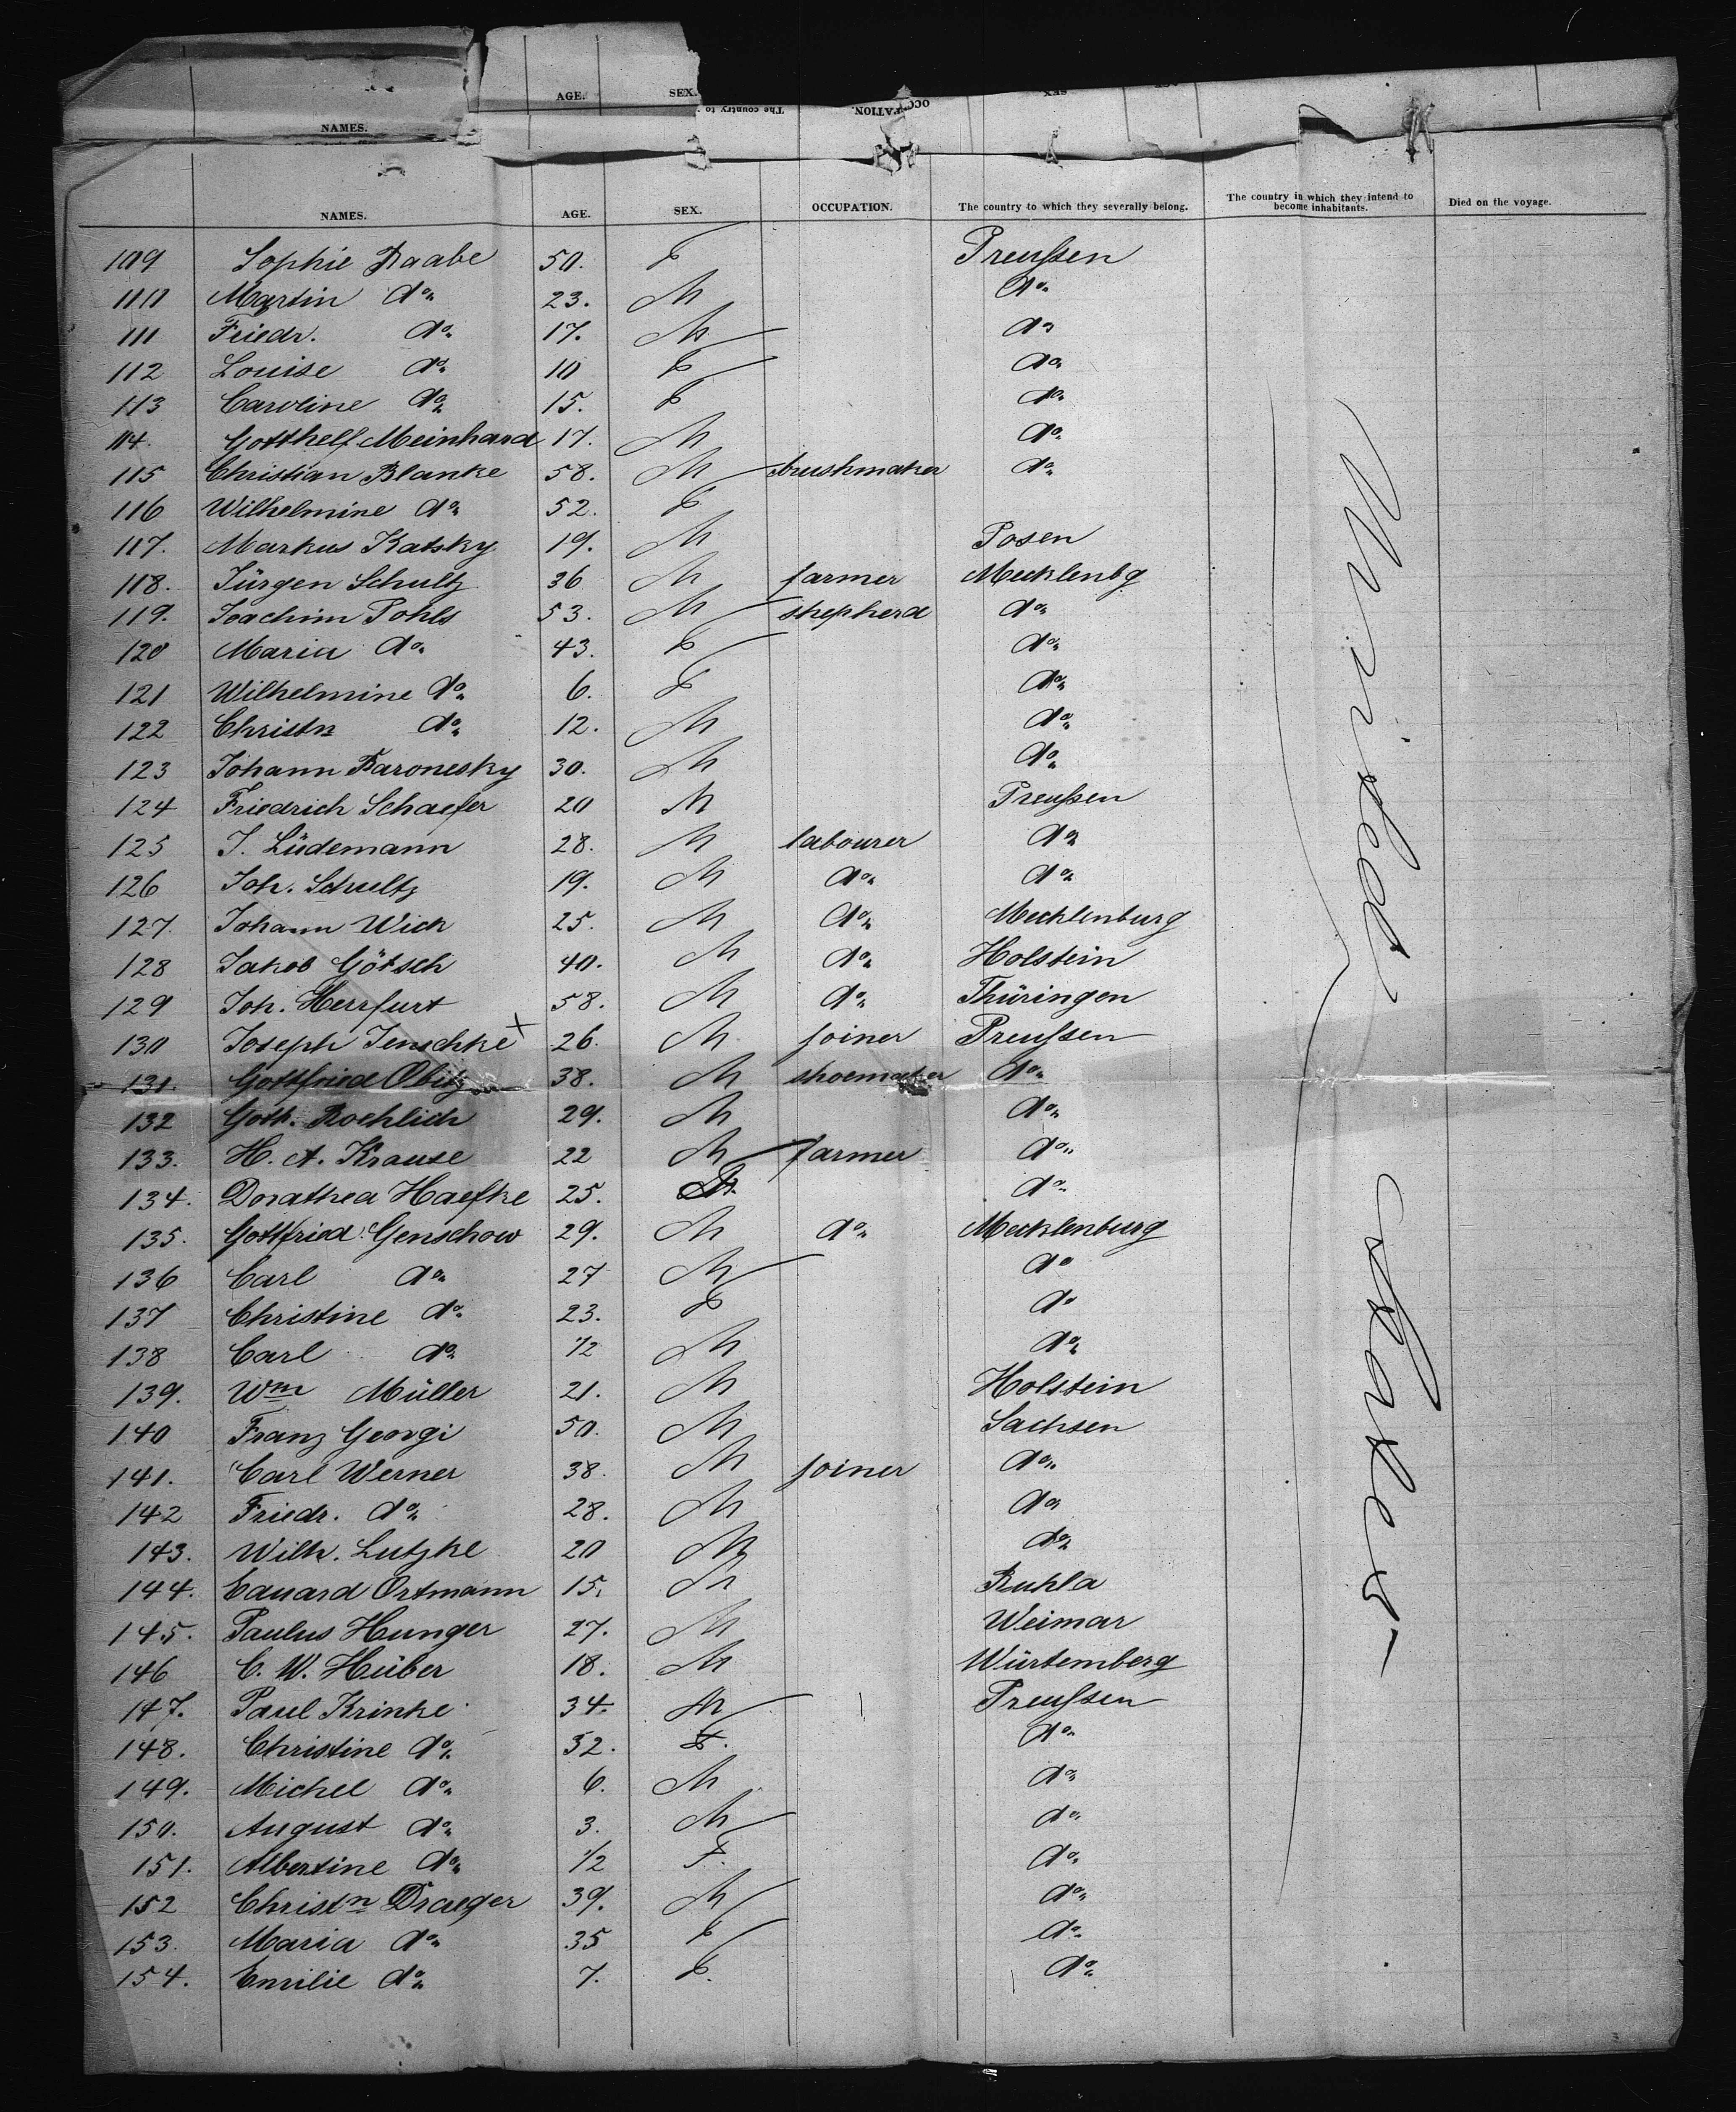 NAMES. AGE. SEX. The country to OCCUPATION. SEX AGE
NAMES. AGE. SEX. OCCUPATION. The country to which they severally belong. The country in which they intend to become inhabitants. Died on the voyage.
109 Sophie Raabe 50. F Preußen
110 Martin do 23. M do
111 Friedr. do 17. M do
112 Louise do 10 F do
113 Caroline do 15. F do
114. Gotthelf Meinhard 17. M do
115 Christian Blanke 58. M brushmaker do
116 Wilhelmine do 52. F
117. Markus Katsky 19. M Posen
118. Jürgen Schultz 36 M farmer Mecklenbg
119. Joachim Pohls 53. M shepherd do
120 Maria do 43. F do
121 Wilhelmine do 6. F do
122 Christn do 12. M do
123 Johann Baronesky 30. M do
124 Friedrich Schaefer 20 M Preußen
125 J. Lüdemann 28. M labourer do
126 Joh. Schultz 19. M do do
127. Johann Wich 25. M do Mecklenburg
128 Jakob Götsch 40. M do Holstein
129 Joh. Herrfurt 58. M do Thüringen
130 Joseph Jenschke x 26. M joiner Preußen
131. Gottfried Obitz 38. M shoemaker do
132 Gott. Roehlich 29. M do
133. H. A. Krause 22 M farmer do
134. Dorathea Haefke 25. F do
135. Gottfried Genschow 29. M do Mecklenburg
136 Carl do 27 M do
137 Christine do 23. F do
138 Carl do 1/2 M do
139. Wm Müller 21. M Holstein
140 Franz Georgi 50. M Sachsen
141. Carl Werner 38. M joiner do
142 Friedr. do 28. M do
143. Wilh. Lutzke 20 M do
144. Eduard Ortmann 15. M Ruhla
145. Paulus Hunger 27. M Weimar
146 C. W. Hüber 18. M Würtemberg
147. Paul Krinke 34. M Preußen
148. Christine do 32. F. do
149. Michel do 6. M do
150. August do 3. M do
151. Albertine do 1/2 F. do
152 Christn Draeger 39. M do
153. Maria do 35 F do
154. Emilie do 7. F. do
United
States